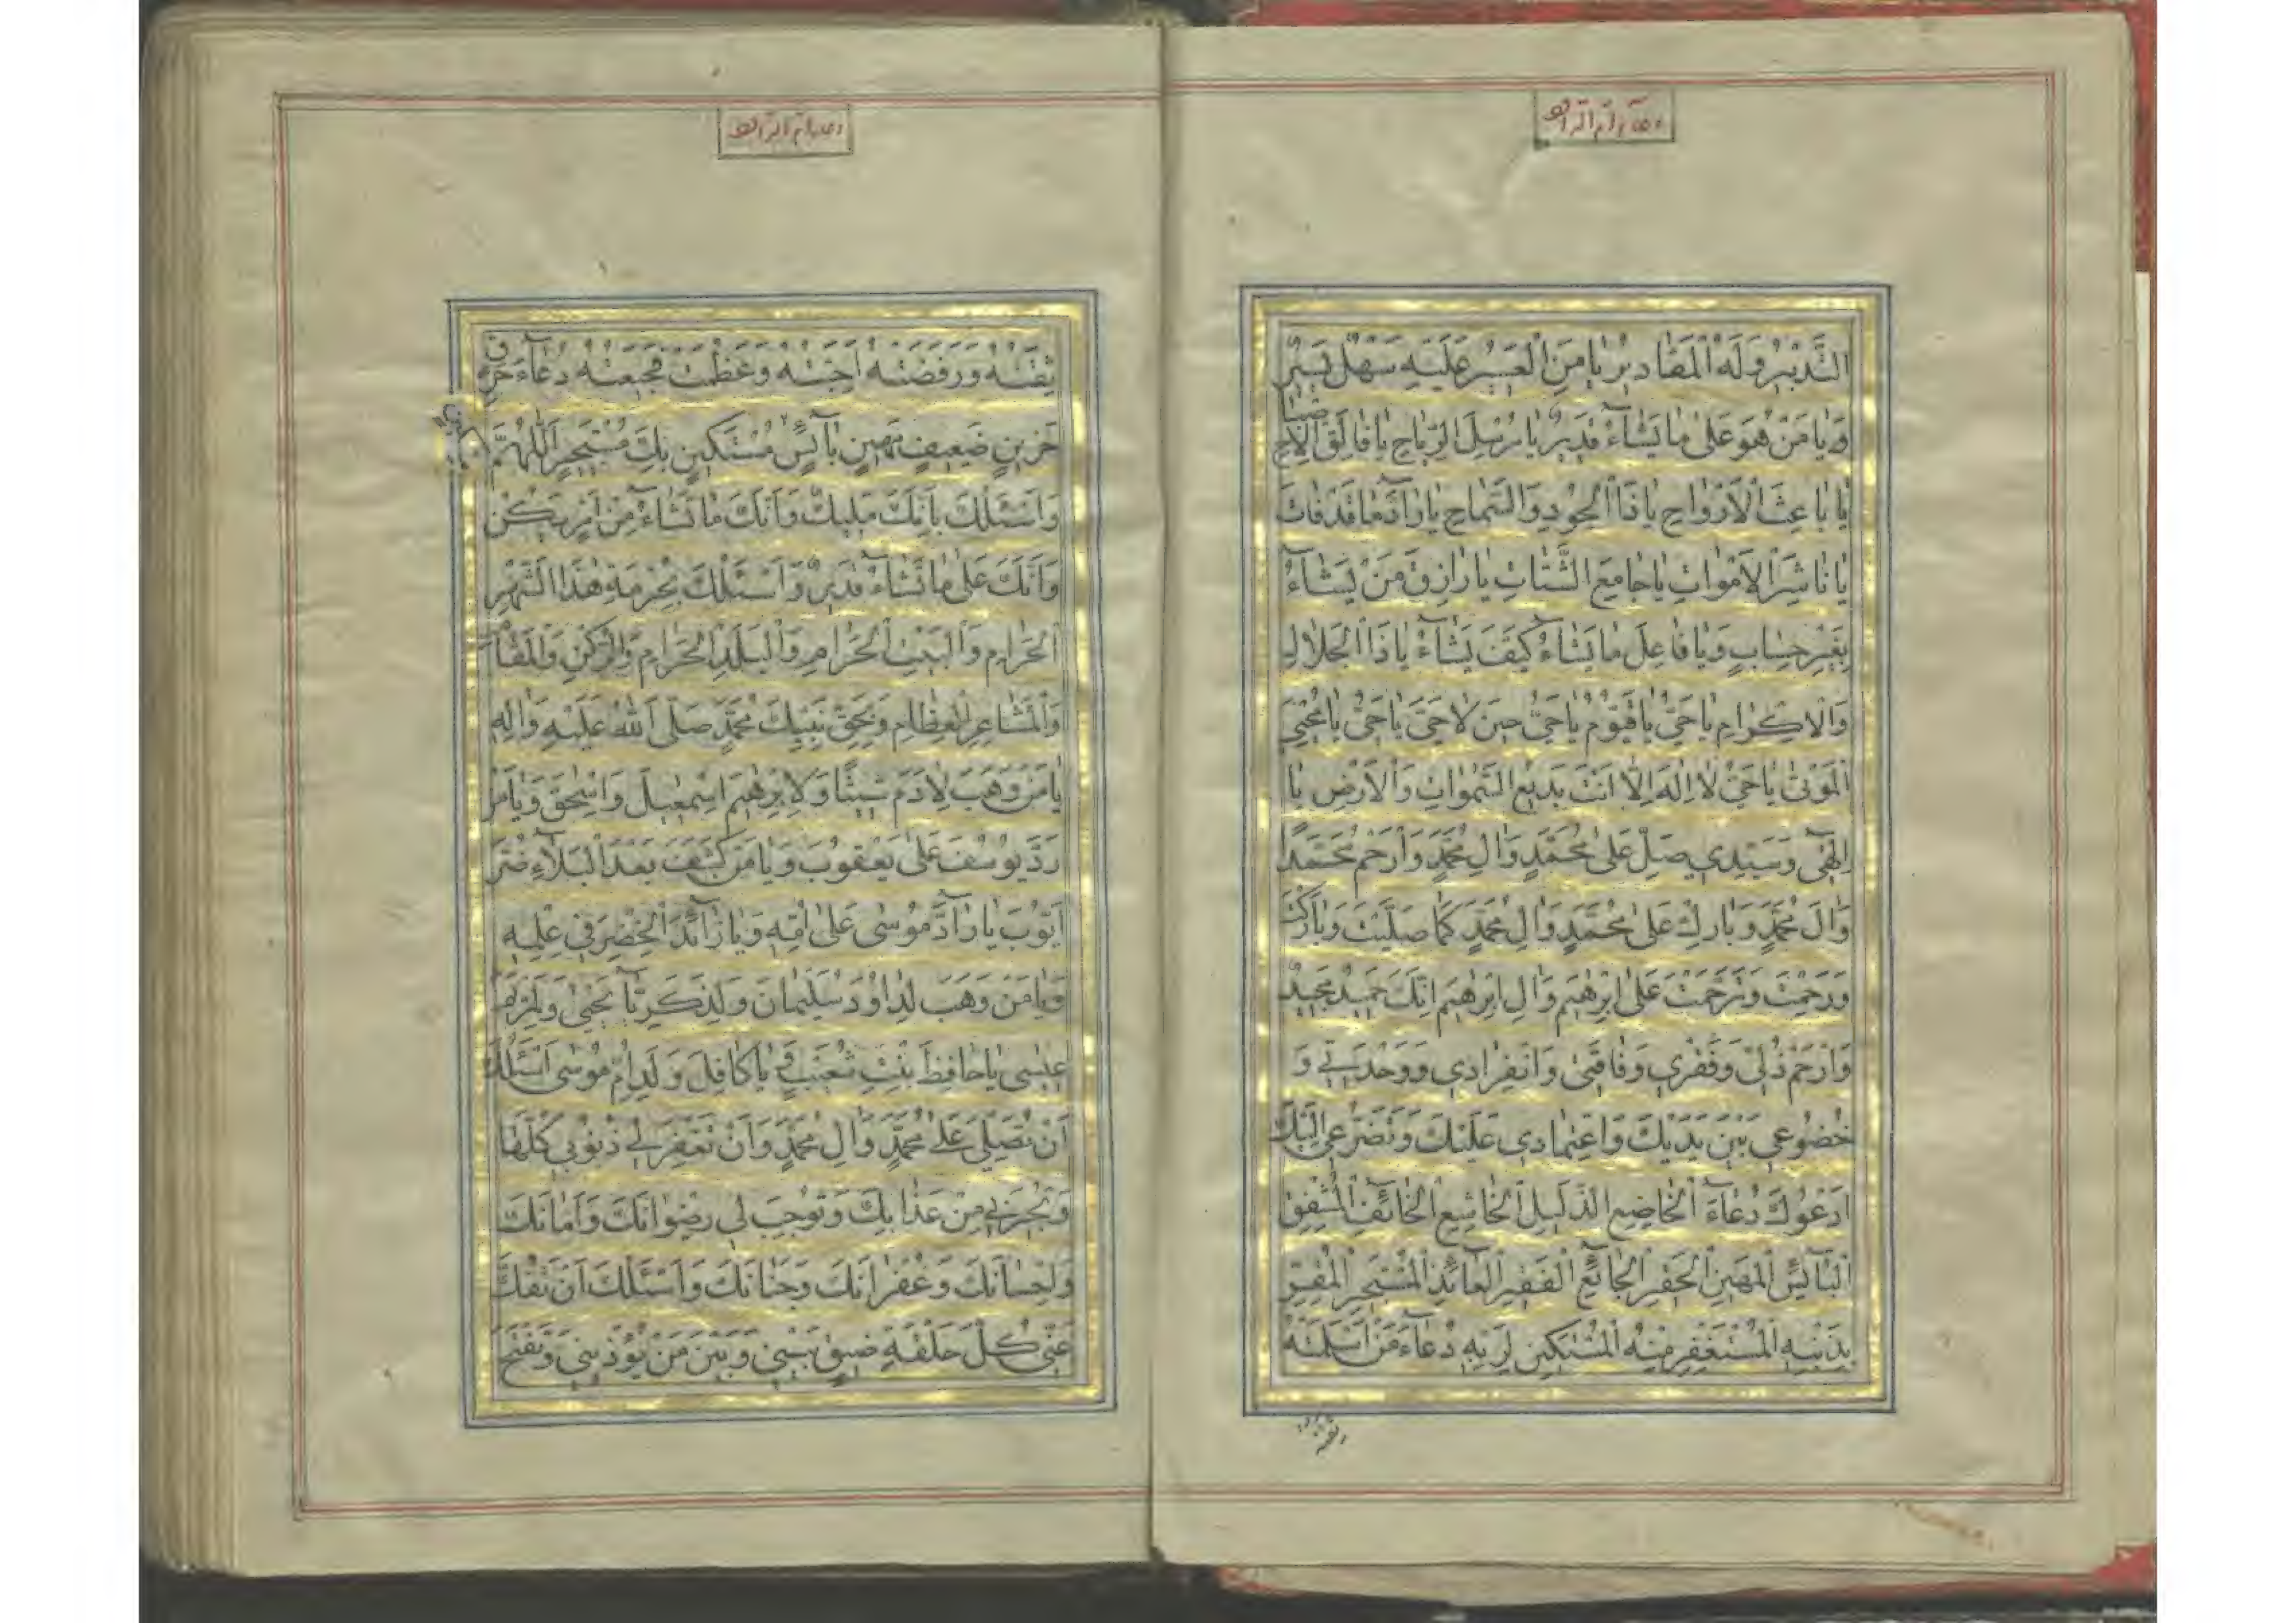 دعاء ام الداود
التَّدْبِيرُ وَلَهُ الْمَقَادِيرُ يَا مَنِ الْعَسِيرُ عَلَيْهِ سَهْلٌ يَسِيرٌ
وَيَا مَنْ هُوَ عَلَى مَا يَشَاءُ قَدِيرٌ يَا مُرْسِلَ الرِّيَاحِ يَا فَالِقَ الْاِصْبَاحِ
يَا بَاعِثَ الْاَرْوَاحِ يَا ذَا الْجُودِ وَالسَّمَاحِ يَا رَادَّ مَا قَدْ فَاتَ
يَا نَاشِرَ الْاَمْوَاتِ يَا جَامِعَ الشَّتَاتِ يَا رَازِقَ مَنْ يَشَاءُ
بِغَيْرِ حِسَابٍ وَيَا فَاعِلَ مَا يَشَاءُ كَيْفَ يَشَاءُ يَا ذَا الْجَلَالِ
وَالْاِكْرَامِ يَا حَيُّ يَا قَيُّومُ يَا حَيُّ حِينَ لَا حَيَّ يَا حَيُّ يَا مُحْيِيَ
الْمَوْتَى يَا حَيُّ لَا اِلَهَ اِلَّا اَنْتَ بَدِيعُ السَّمَوَاتِ وَالْاَرْضِ يَا
اِلَهِي وَسَيِّدِي صَلِّ عَلَى مُحَمَّدٍ وَآلِ مُحَمَّدٍ وَارْحَمْ مُحَمَّدًا
وَآلَ مُحَمَّدٍ وَبَارِكْ عَلَى مُحَمَّدٍ وَآلِ مُحَمَّدٍ كَمَا صَلَّيْتَ وَبَارَكْتَ
وَرَحِمْتَ وَتَرَحَّمْتَ عَلَى اِبْرَهِيمَ وَآلِ اِبْرَهِيمَ اِنَّكَ حَمِيدٌ مَجِيدٌ
وَارْحَمْ ذُلِّي وَفَقْرِي وَفَاقَتِي وَانْفِرَادِي وَوَحْدَتِي وَ
خُضُوعِي بَيْنَ يَدَيْكَ وَاعْتِمَادِي عَلَيْكَ وَتَضَرُّعِي اِلَيْكَ
اَدْعُوكَ دُعَاءَ الْخَاضِعِ الذَّلِيلِ الْخَاشِعِ الْخَائِفِ الْمُشْفِقِ
الْبَائِسِ الْمَهِينِ الْحَقِيرِ الْجَائِعِ الْفَقِيرِ الْعَائِذِ الْمُسْتَجِيرِ الْمُقِرِّ
بِذَنْبِهِ الْمُسْتَغْفِرِ مِنْهُ الْمُسْتَكِينِ لِرَبِّهِ دُعَاءَ مَنْ اَسْلَمَتْهُ
دعاء ام الداود
ثِقَتُهُ وَرَفَضَتْهُ اَحِبَّتُهُ وَعَظُمَتْ فَجِيعَتُهُ دُعَاءَ حَرِقٍ
حَزِينٍ ضَعِيفٍ مَهِينٍ بَائِسٍ مُسْتَكِينٍ بِكَ مُسْتَجِيرٍ اَللَّهُمَّ
وَاَسْئَلُكَ بِاَنَّكَ مَلِيكٌ وَاَنَّكَ مَا تَشَاءُ مِنْ اَمْرٍ يَكُنْ
وَاَنَّكَ عَلَى مَا تَشَاءُ قَدِيرٌ وَاَسْئَلُكَ بِحُرْمَةِ هَذَا الشَّهْرِ
الْحَرَامِ وَالْبَيْتِ الْحَرَامِ وَالْبَلَدِ الْحَرَامِ وَالرُّكْنِ وَالْمَقَامِ
وَالْمَشَاعِرِ الْعِظَامِ وَبِحَقِّ نَبِيِّكَ مُحَمَّدٍ صَلَّى اللهُ عَلَيْهِ وَآلِهِ
يَا مَنْ وَهَبَ لِآدَمَ شِيثًا وَلِاِبْرَهِيمَ اِسْمَعِيلَ وَاِسْحَقَ وَيَا مَنْ
رَدَّ يُوسُفَ عَلَى يَعْقُوبَ وَيَا مَنْ كَشَفَ بَعْدَ الْبَلَاءِ ضُرَّ
اَيُّوبَ يَا رَادَّ مُوسَى عَلَى اُمِّهِ وَيَا زَائِدَ الْخِضْرِ فِي عِلْمِهِ
وَيَا مَنْ وَهَبَ لِدَاوُدَ سُلَيْمَانَ وَلِذَكَرِيَّا يَحْيَى وَلِمَرْيَمَ
عِيسَى يَا حَافِظَ بِنْتِ شُعَيْبٍ وَيَا كَافِلَ وَلَدِ اُمِّ مُوسَى اَسْئَلُكَ
اَنْ تُصَلِّيَ عَلَى مُحَمَّدٍ وَآلِ مُحَمَّدٍ وَاَنْ تَغْفِرَ لِي ذُنُوبِي كُلَّهَا
وَتُجِيرَنِي مِنْ عَذَابِكَ وَتُوجِبَ لِي رِضْوَانَكَ وَاَمَانَكَ
وَاِحْسَانَكَ وَغُفْرَانَكَ وَجِنَانَكَ وَاَسْئَلُكَ اَنْ تَفُكَّ
عَنِّي كُلَّ حَلْقَةِ ضِيقٍ بَيْنِي وَبَيْنَ مَنْ يُؤْذِينِي وَتَفْتَحَ